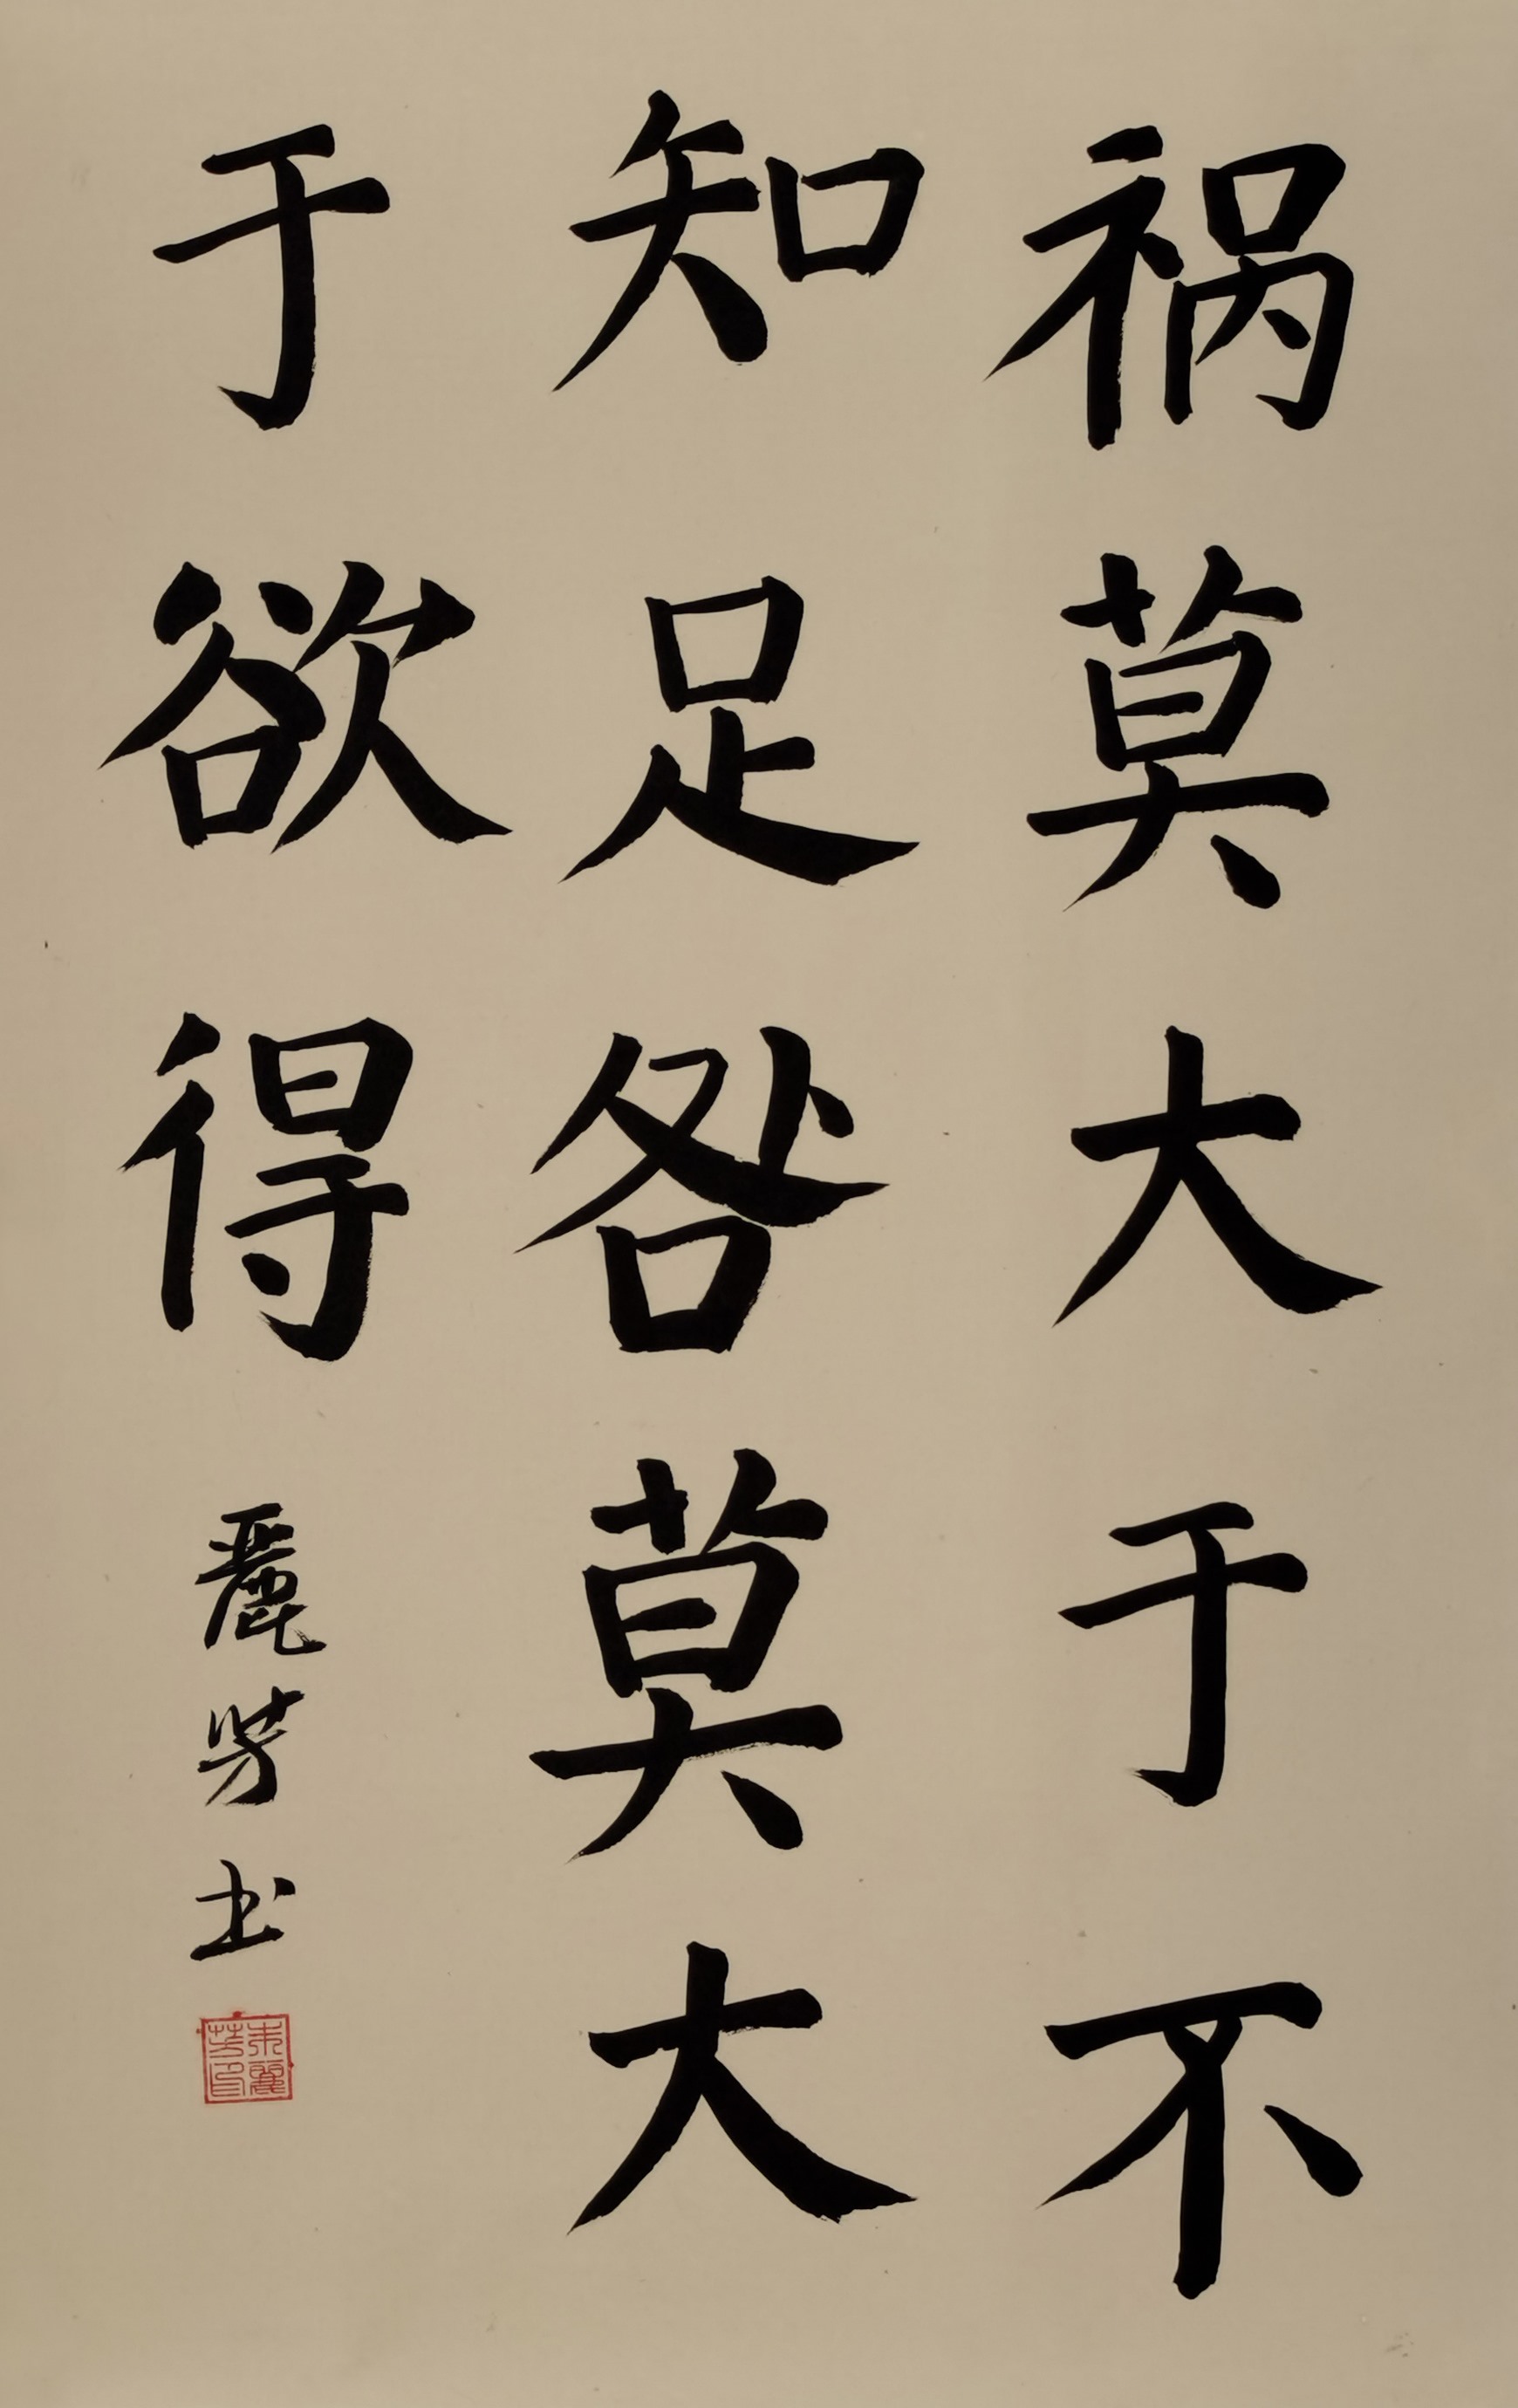 祸莫大于不
知足咎莫大
于欲得
麗芳书
朱麗芳印